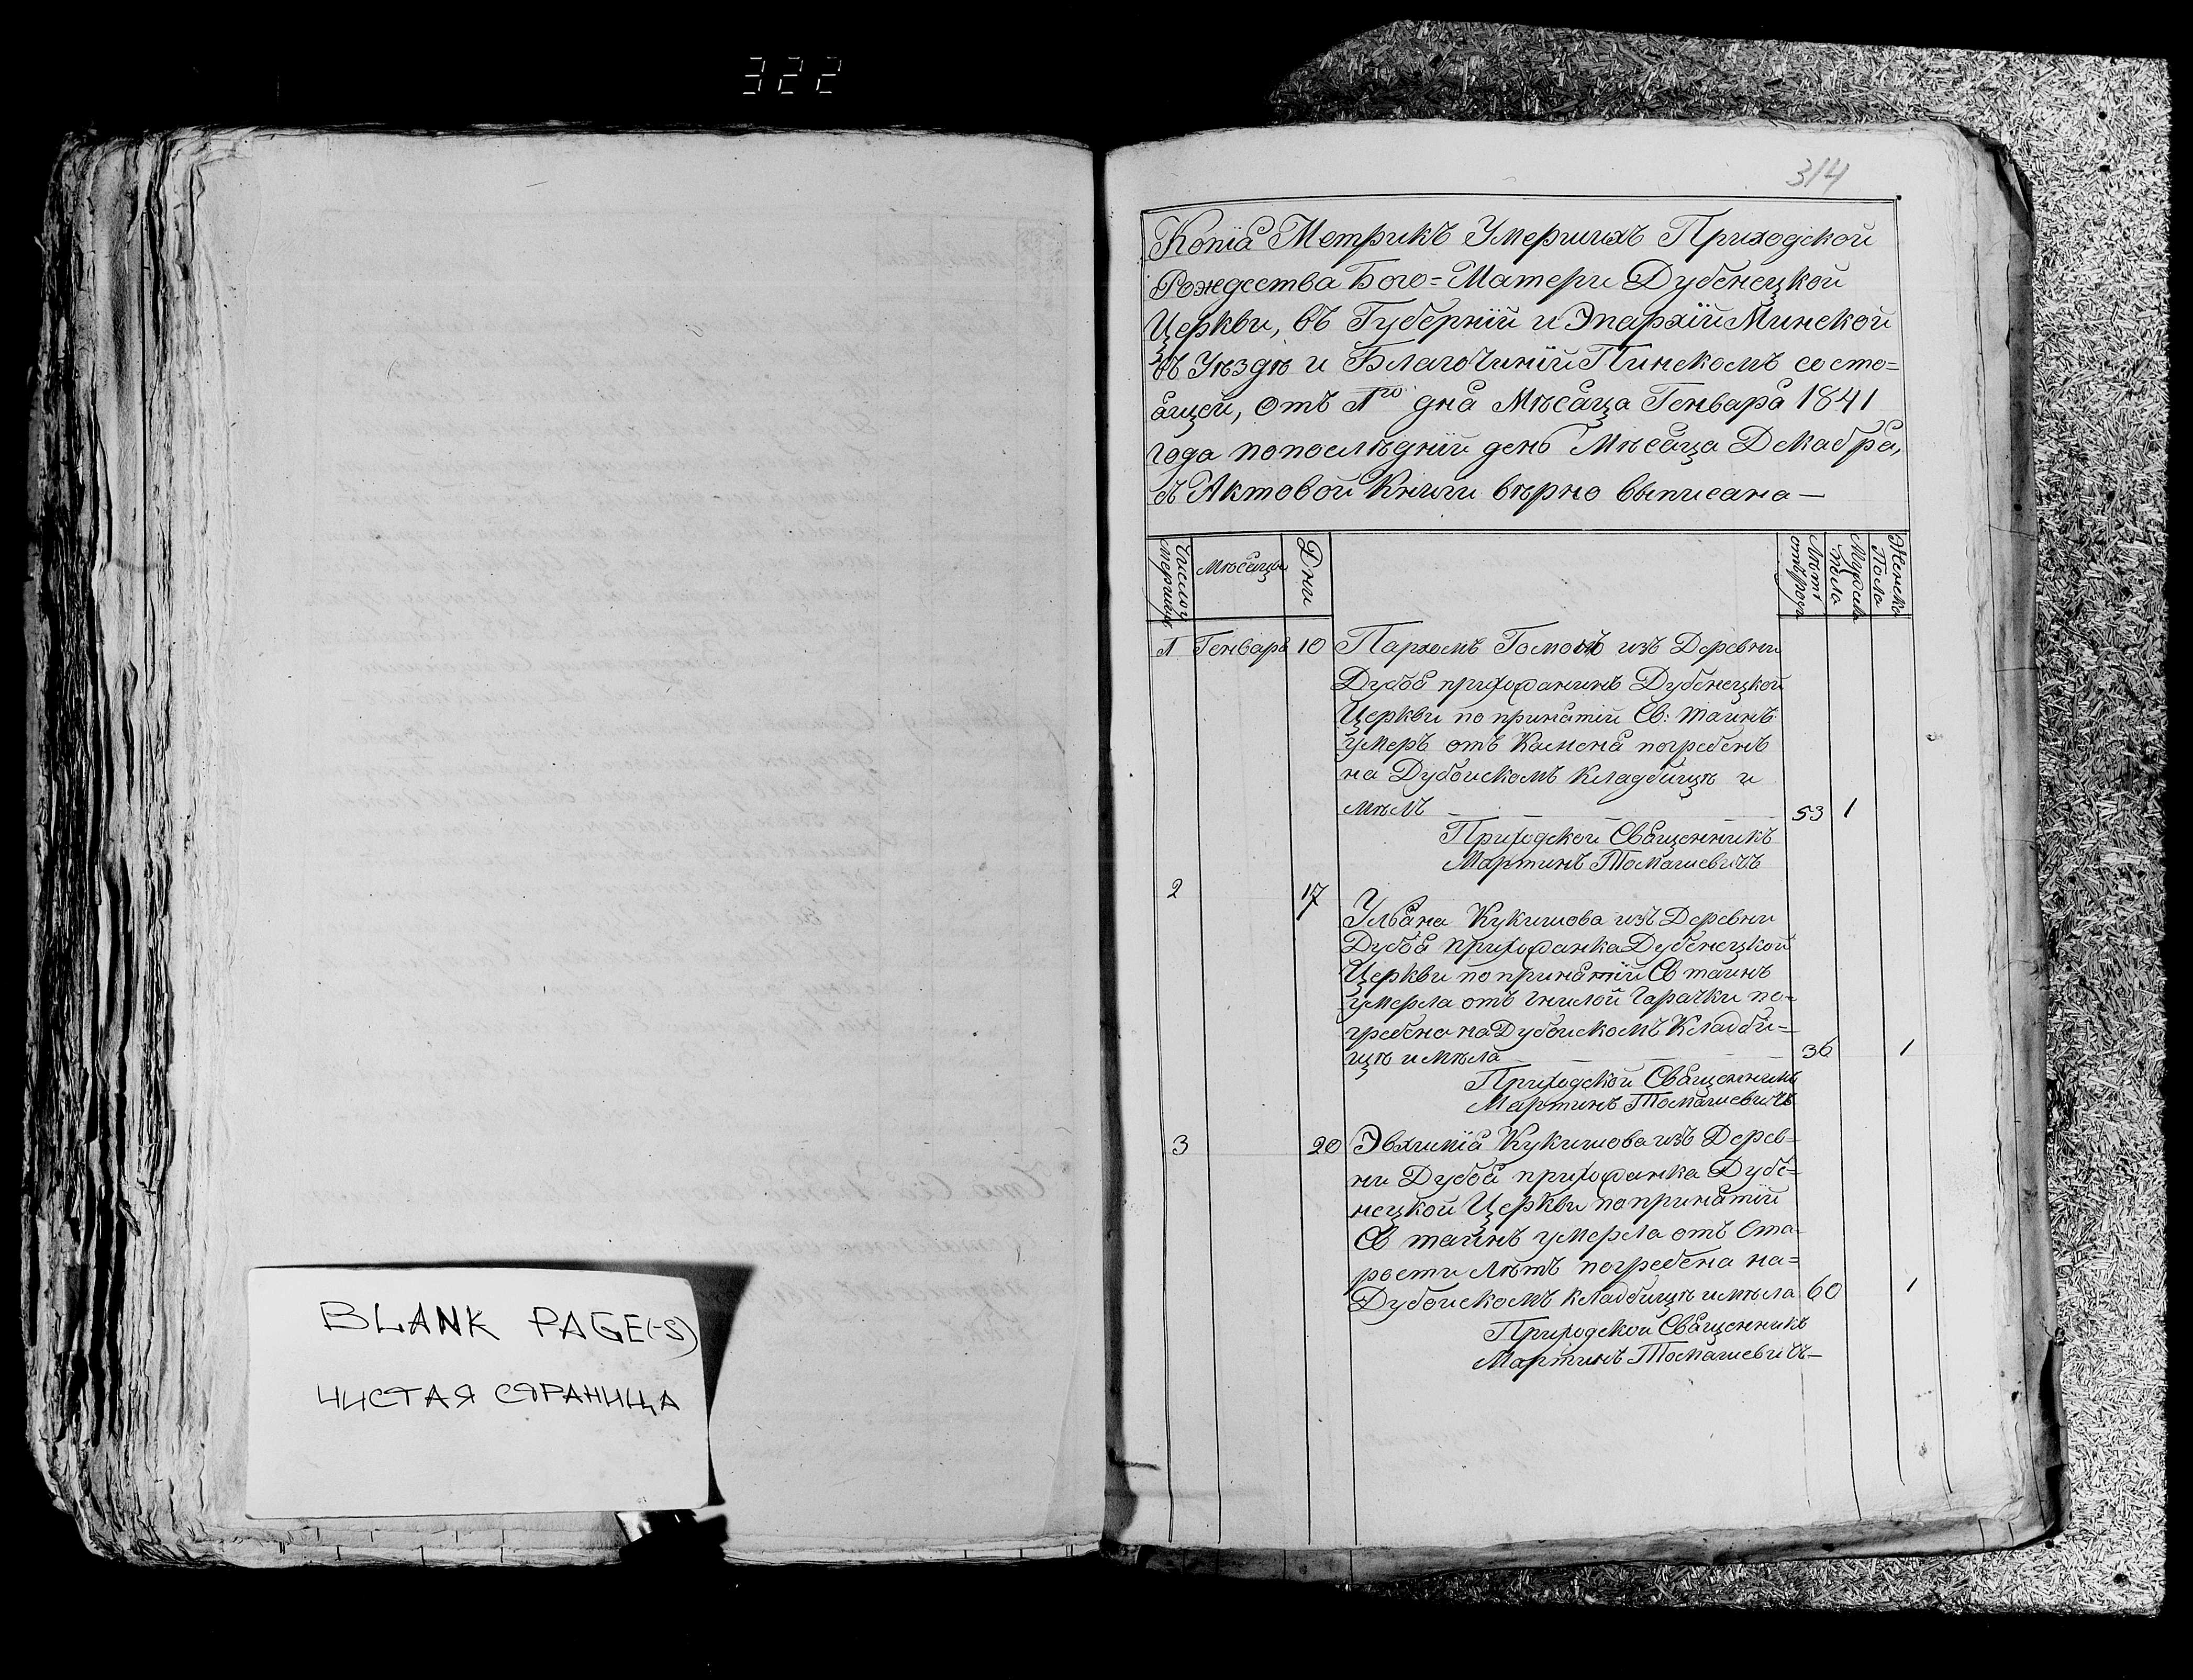 322
314
Копія Метрикъ Умершихъ Приходской
Рождества Бого=Матери Дубенецкой
Церкви, въ Губерніи и Эпархіи Минской
въ Уѣздѣ и Благочиніи Пинскомъ состо=
ящей, отъ 1го дня Мѣсяца Генваря 1841
года попослѣдній день Мѣсяца Декабря,
съ Актовой Книги вѣрно выписана —
Число умершихъ
Мѣсяцы
Дни
Лѣтъ отъ роду
Мужеска Пола
Женска Пола
1 Генварь 10 Пархомъ Гомонъ изъ Деревни
Дубоя прихожанинъ Дубенецкой
Церкви по принятіи Св: таинъ
умеръ отъ Каменя погребенъ
на Дубойскомъ Кладбищѣ и
мѣлъ 53 1
Приходской Священникъ
Мартинъ Томашевичъ
2 17 Ульяна Кукишова изъ Деревни
Дубоя прихожанка Дубенецкой
Церкви по принятіи Св таинъ
умерла отъ гнилой гарачки по=
гребена на Дубойскомъ Кладби=
щѣ и мѣла 36 1
Приходской Священникъ
Мартинъ Томашевичъ
3 20 Эвхимія Кукишова изъ Дерев=
ни Дубоя прихожанка Дубе=
нецкой Церкви по принятіи
Св таинъ умерла отъ Ста=
рости лѣтъ погребена на=
Дубойскомъ кладбищѣ и мѣла 60 1
Приходской Священникъ
Мартинъ Томашевичъ —
BLANK PAGE(-S)
ЧИСТАЯ СТРАНИЦА